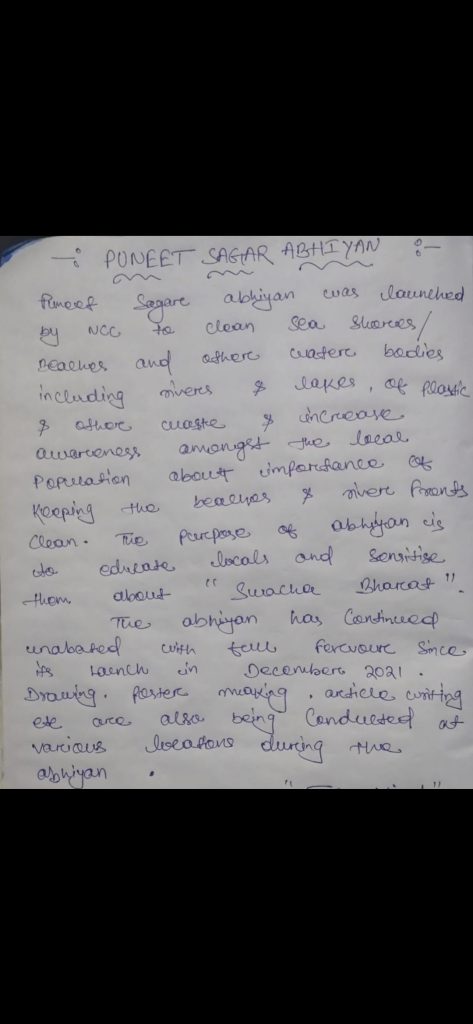 -: PUNEET SAGAR ABHIYAN :-
Puneet Sagare abhiyan was launched
by NCC to clean sea shores/
Beaches and othere watere bodies
including rivers & lakes, of plastic
& other waste & increase
awareness amongst the local
Population about importance of
Keeping the beaches & rivere fronts
Clean. The purpose of abhiyan is
to educate locals and sensitise
them about "Swacha Bharat".
The abhiyan has Continued
unabated with full fervoure since
its launch in December 2021.
Drawing, Poster making, article writing
etc are also being Conducted at
various locations during the
abhiyan.